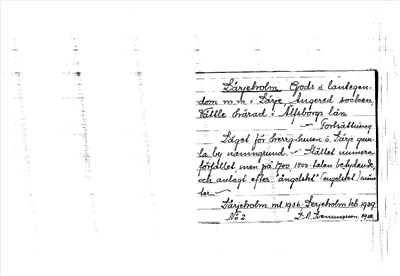 Lärjeholm Gods o. lantegen-
dom m.m. i Lärje Angered socken,
Vättle härad i Älfsborgs län
— Fortsättning
Läget för herrg.husen å Lärje gam-
la by namngrund. — Stället numera
förfallet men på 1700 1800-talen betydande,
och anlagt efter "ängeltst" (engelskt) müns-
ter. —
Lärjeholm mt 1906. Lerjeholm kb 1929.
No 2